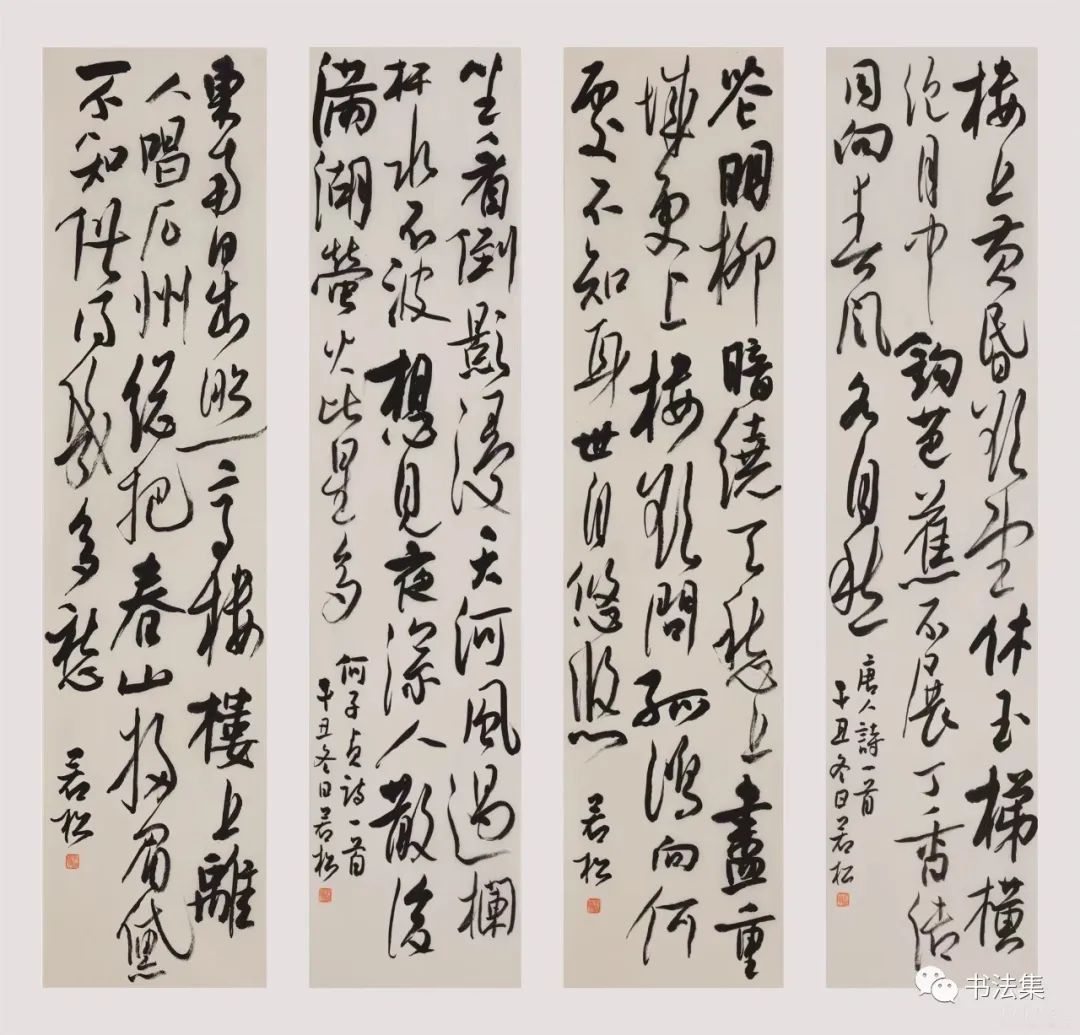 楼上黄昏欲望休玉梯横
绝月中鈎芭蕉不展丁香结
同向春风各自愁
唐人詩一首
辛丑冬日若松
花明柳暗繞天愁上盡重
城更上楼欲問孤鴻向何
處不知身世自悠悠
若松
坐看倒影浸天河風過欄
杆水不波想見夜深人散後
滿湖螢火比星多
何子貞詩一首
辛丑冬日若松
東南日出照高楼樓上離
人唱石州總把春山掃眉黛
不知供得幾多愁
若松
书法集